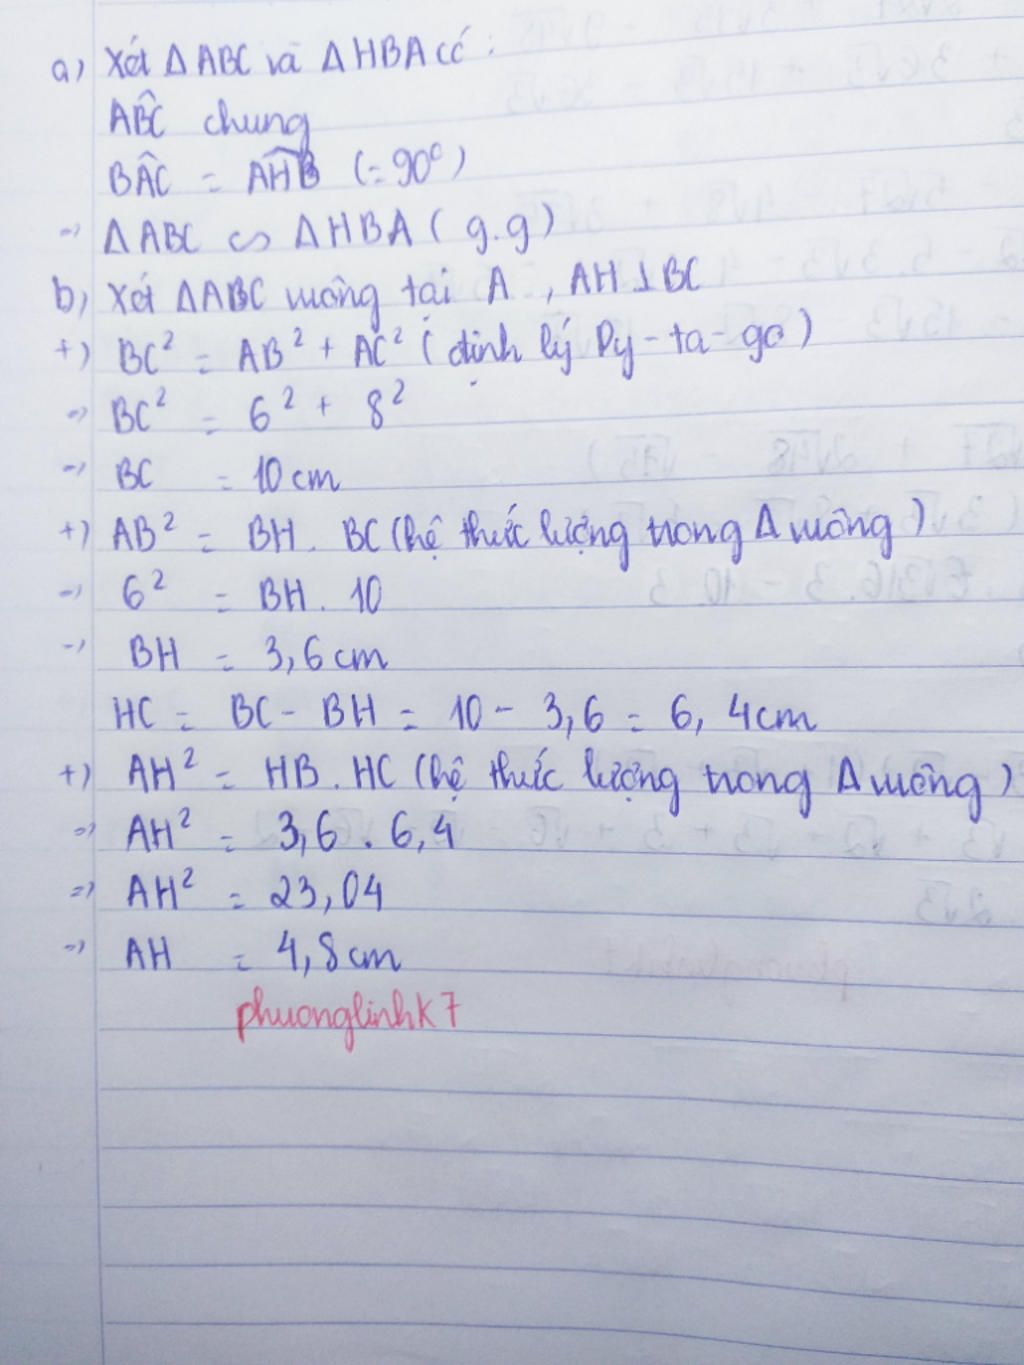 a) Xét ΔABC và ΔHBA có:
AB̂C chung
BÂC = AĤB (=90°)
=> ΔABC ∽ ΔHBA (g.g)
b) Xét ΔABC vuông tại A, AH⊥BC
+) BC² = AB² + AC² (định lý Py-ta-go)
=> BC² = 6² + 8²
=> BC = 10cm
+) AB² = BH . BC (hệ thức lượng trong Δ vuông)
=> 6² = BH . 10
=> BH = 3,6cm
HC = BC - BH = 10 - 3,6 = 6,4cm
+) AH² = HB . HC (hệ thức lượng trong Δ vuông)
=> AH² = 3,6 . 6,4
=> AH² = 23,04
=> AH = 4,8cm
phuonglinhk7